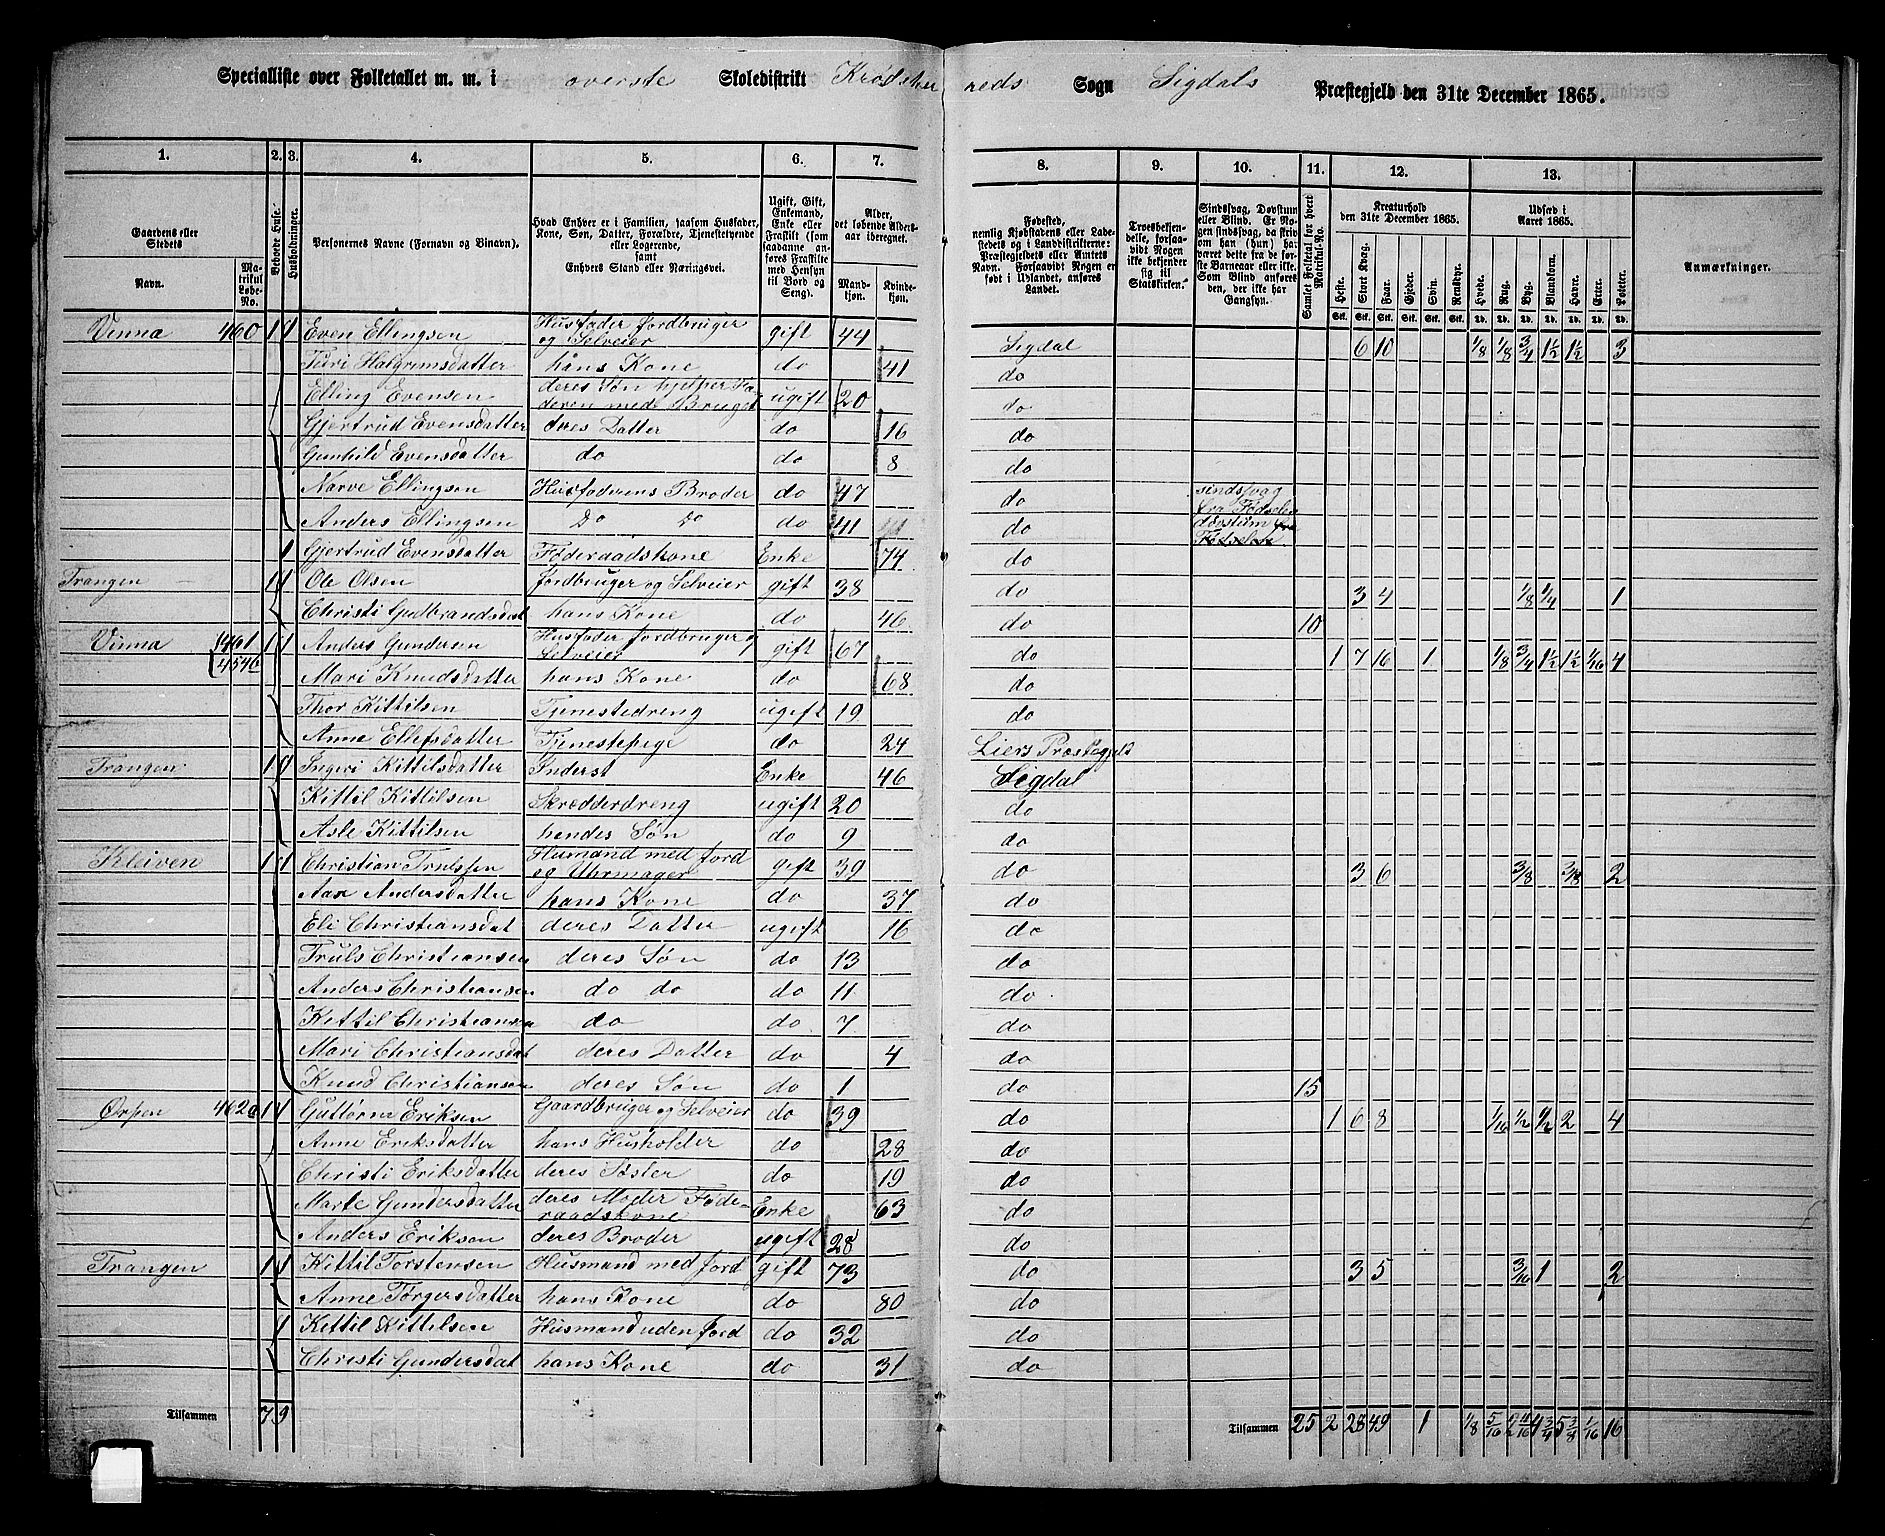 Specialliste over Folketallet m. m. i overste Skoledistrikt Krødshereds Sogn Sigdals Præstegjeld den 31te December 1865.
1. 2. 3. 4. 5. 6. 7. 8. 9. 10. 11. 12. 13.
Gaardens eller Stedets Navn. Matrikul Løbe-No.
Beboede Huse.
Husholdninger.
Personernes Navne (Fornavn og Binavn).
Hvad Enhver er i Familien, saasom Husfader, Kone, Søn, Datter, Forældre, Tjenestetyende eller Logerende, samt Enhvers Stand eller Næringsvei.
Ugift, Gift, Enkemand, Enke eller Fraskilt (som saadanne anføres Fraskilte med Hensyn til Bord og Seng).
Alder, det løbende Aldersaar iberegnet. Mandkjøn. Kvindekjøn.
Fødested, nemlig Kjøbstadens eller Ladestedets og i Landdistrikterne: Præstegjeldets eller Amtets Navn. Forsaavidt Nogen er født i Udlandet, anføres Landet.
Troesbekjendelse, forsaavidt Nogen ikke bekjender sig til Statskirken.
Sindssvag, Døvstum eller Blind. Er Nogen sindssvag, da skriv om han (hun) har været det fra de første Barneaar eller ikke. Som Blind anføres den, der ikke har Gangsyn.
Samlet Folketal for hvert Matrikul-No.
Kreaturhold den 31te December 1865.
Heste. Stort Kvæg. Faar. Gjeder. Svin. Rensdyr.
Udsæd i Aaret 1865.
Hvede. Rug. Byg. Blandkorn. Havre. Erter. Poteter.
Anmærkninger.
Vinna 460 1 1 Even Ellingsen Husfader Jordbruger og Selveier gift 44 Sigdal 6 10 1/8 1/8 3/4 1 1/2 1 1/2 3
Turi Halgrimsdatter hans Kone do 41 do
Elling Evensen deres Søn hjelper Faderen med Bruget ugift 20 do
Gjertrud Evensdatter deres Datter do 16 do
Gunhild Evensdatter do do 8 do
Narve Ellingsen Husfaderens Broder do 47 do sindssvag fra Fødselen
Anders Ellingsen Do Do do 41 do døvstum fra Fødselen
1 Gjertrud Evensdatter Føderaadskone Enke 74 do
Trangen 1 1 Ole Olsen Jordbruger og Selveier gift 38 do 3 4 1/8 1/4 1
Christi Gudbrandsdat hans Kone do 46 do 10
Vinna 461 454b 1 1 Anders Gundersen Husfader Jordbruger og Selveier gift 67 do 1 7 16 1 1/8 3/4 1 1/2 1 1/2 1/16 4
Mari Knudsdatter hans Kone do 68 do
Thor Kittilsen Tjenestedreng ugift 19 do
Anne Ellefsdatter Tjenestepige do 24 Liers Præstegjeld
Trangen 1 1 Ingeri Kittilsdatter Inderst Enke 46 Sigdal
Kittil Kittilsen Skrædderdreng ugift 20 do
Asle Kittilsen hendes Søn do 9 do
Kleiven 1 1 Christian Trulssen Husmand med Jord og Uhrmager gift 39 do 3 6 3/8 3/8 2
Aase Andersdatter hans Kone do 37 do
Eli Christiansdat deres Datter ugift 16 do
Truls Christiansen deres Søn do 13 do
Anders Christiansen do do do 11 do
Kittil Christiansen do do 7 do
Mari Christiansdat deres Datter do 4 do
Knud Christiansen deres Søn do 1 do 15
Ørpen 462a 1 1 Guttorm Eriksen Gaardbruger og Selveier do 39 do 1 6 8 1/16 1/2 1/2 2 4
Anne Eriksdatter hans Husholder do 28 do
Christi Eriksdatter deres Søster do 19 do
Marte Gundersdatter deres Moder Føderaadskone Enke 63 do
Anders Eriksen deres Broder ugift 28 do
Trangen 1 1 Kittil Torstensen Husmand med Jord gift 73 do 3 5 3/16 1 2
Anne Torgersdatter hans Kone do 80 do
1 Kittil Kittilsen Husmand uden Jord do 32 do
Christi Gundersdat hans Kone do 31 do
Tilsammen 7 9 Tilsammen 25 2 28 49 1 1/8 5/16 4 3/4 5 3/8 1/16 16